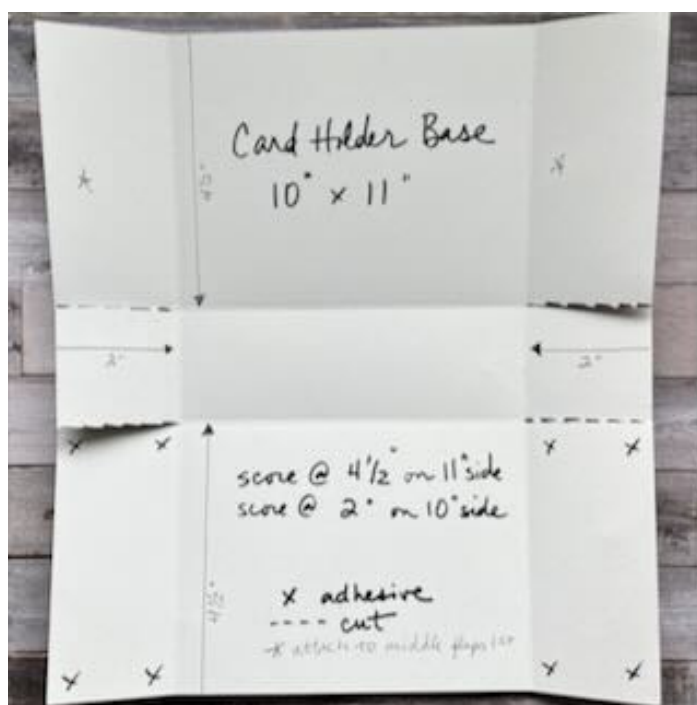 Card Holder Base
10" x 11"
4½"
2"
2"
score @ 4½" on 11" side
score @ 2" on 10" side
4½"
x adhesive
---- cut
* attach to middle flaps 1st